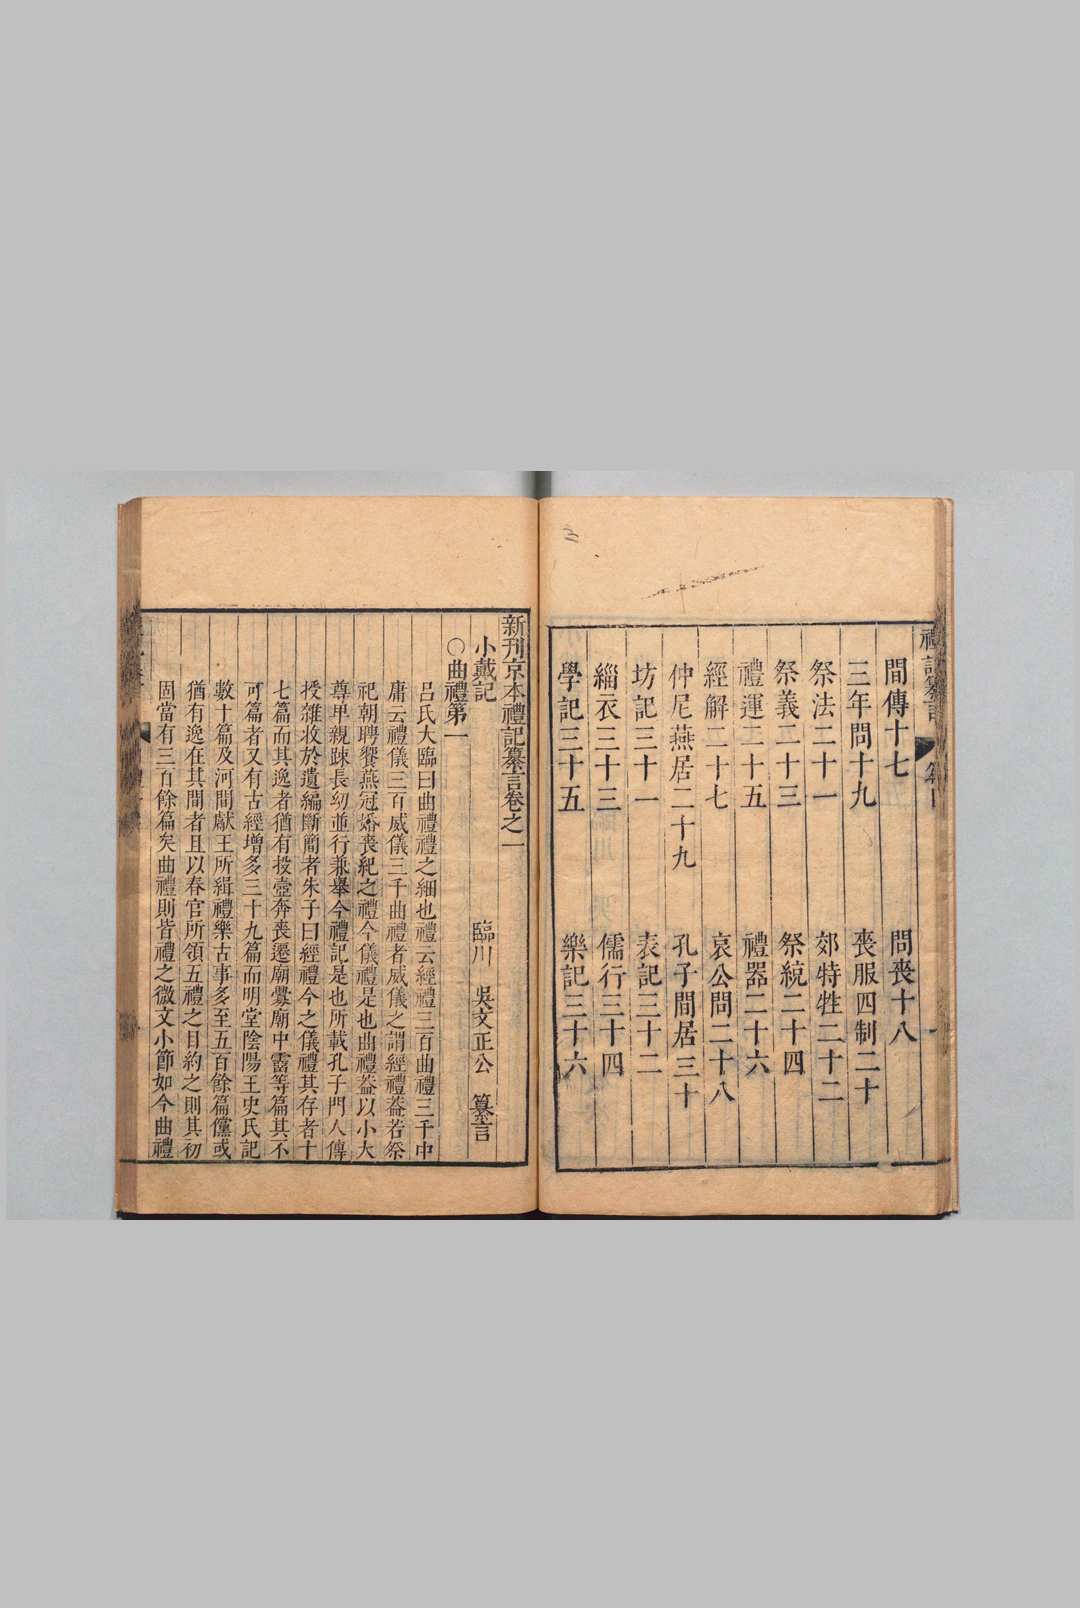 禮記纂言
間傳十七　問喪十八
三年問十九　喪服四制二十
祭法二十一　郊特牲二十二
祭義二十三　祭統二十四
禮運二十五　禮器二十六
經解二十七　哀公問二十八
仲尼燕居二十九　孔子間居三十
坊記三十一　表記三十二
緇衣三十三　儒行三十四
學記三十五　樂記三十六
新刊京本禮記纂言卷之一
小戴記　臨川　吳文正公　纂言
○曲禮第一
呂氏大臨曰曲禮禮之細也禮云經禮三百曲禮三千中
庸云禮儀三百威儀三千曲禮者威儀之謂經禮葢若祭
祀朝聘饗燕冠婚喪紀之禮今儀禮是也曲禮葢以小大
尊卑親踈長幼並行兼舉今禮記是也所載孔子門人傳
授雜收於遺編斷簡者朱子曰經禮今之儀禮其存者十
七篇而其逸者猶有投壺奔喪遷廟釁廟中霤等篇其不
可篇者又有古經增多三十九篇而明堂陰陽王史氏記
數十篇及河間獻王所緝禮樂古事多至五百餘篇儻或
猶有逸在其間者且以春官所領五禮之目約之則其初
固當有三百餘篇矣曲禮則皆禮之微文小節如今曲禮